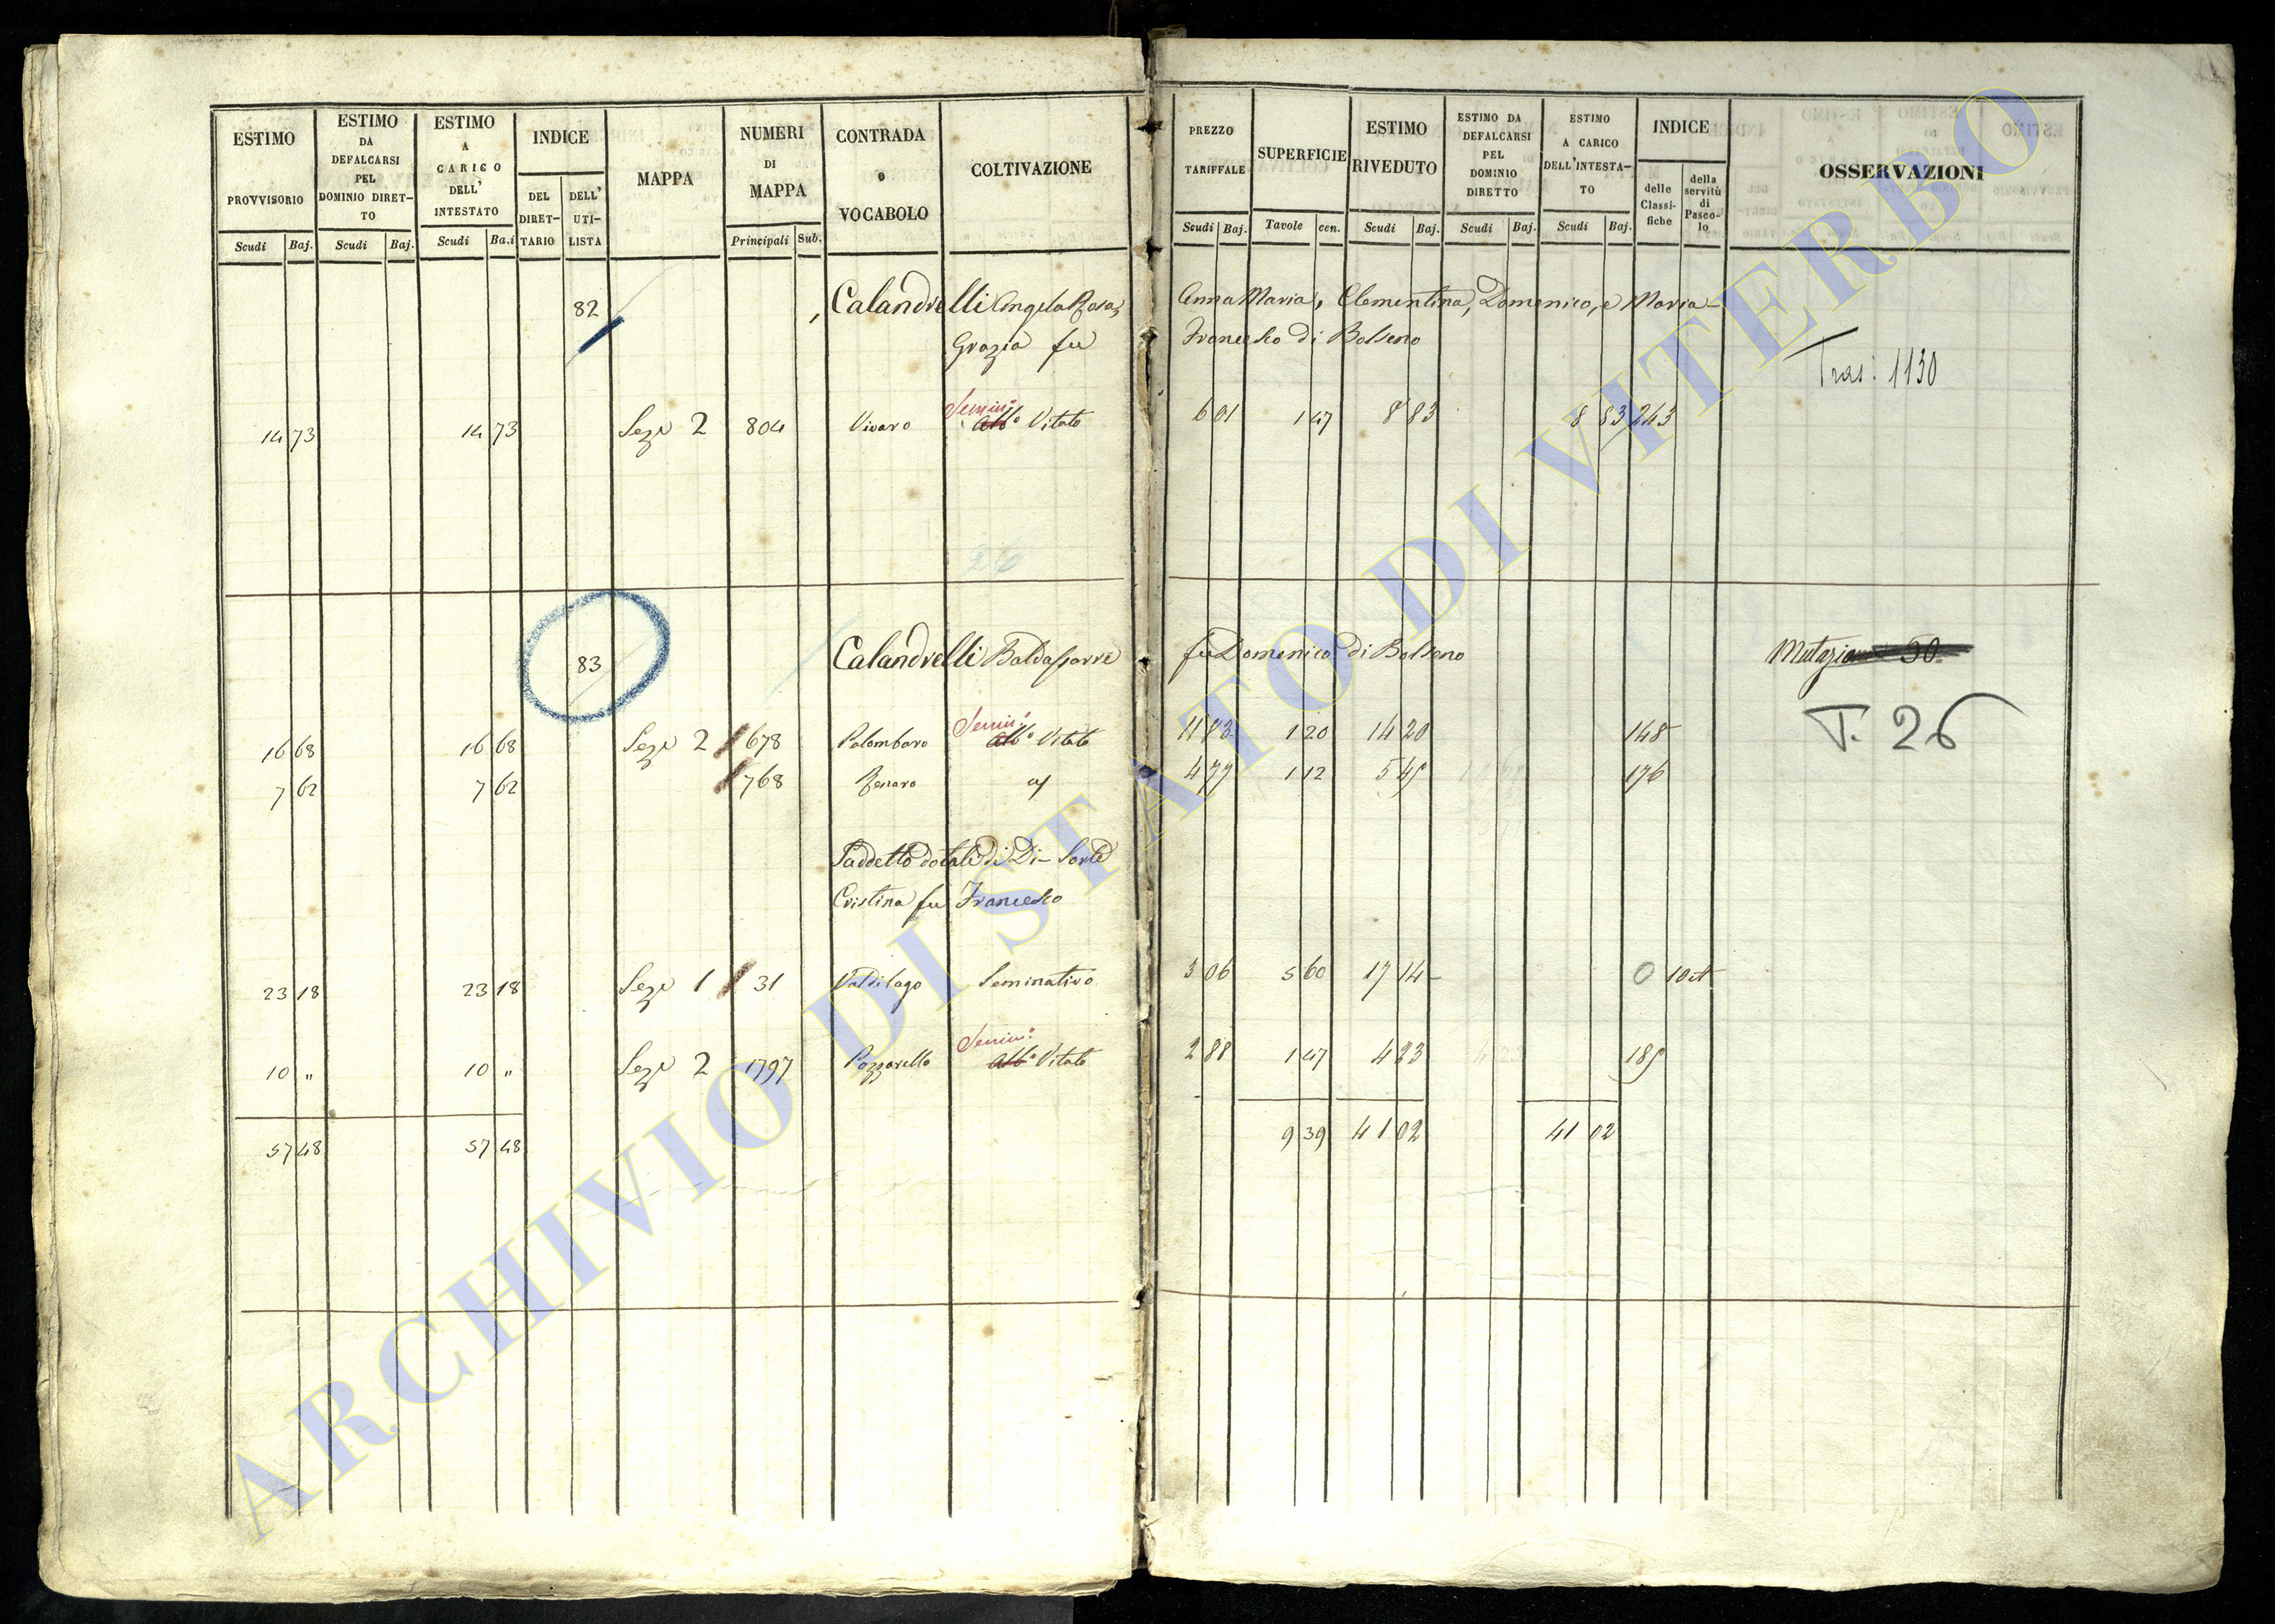 ESTIMO PROVVISORIO Scudi Baj.
ESTIMO DA DEFALCARSI PEL DOMINIO DIRETTO Scudi Baj.
ESTIMO A CARICO DELL' INTESTATO Scudi Ba.i
INDICE DEL DIRETTARIO DELL' UTILISTA
MAPPA
NUMERI DI MAPPA Principali Sub.
CONTRADA o VOCABOLO
COLTIVAZIONE
PREZZO TARIFFALE Scudi Baj.
SUPERFICIE Tavole cen.
ESTIMO RIVEDUTO Scudi Baj.
ESTIMO DA DEFALCARSI PEL DOMINIO DIRETTO Scudi Baj.
ESTIMO A CARICO DELL'INTESTATO Scudi Baj.
INDICE delle Classifiche della servitù di Pascolo
OSSERVAZIONI
82 Calandrelli Angela Rosa, Anna Maria, Clementina, Domenico, e Maria-
Grazia fu Francesco di Bolseno
Tras: 1130
14 73 14 73 Sez.e 2 804 Vivaro Semin.o Alb.o Vitato 6 01 1 47 8 83 8 83 243
26
83 Calandrelli Baldassarre fu Domenico di Bolseno Mutazione 50
T. 26
16 68 16 68 Sez.e 2 678 Palombaro Semin.o Alb.o Vitato 11 83 1 20 14 20 148
7 62 7 62 768 112
Suddetto dotale di Di-Sorte
Cristina fu Francesco
23 18 23 18 Sez.e 1 31 Valdilago Seminativo 3 06 5 60 17 14 0
10 " 10 " Sez.e 2 1797 Pozzarello Semin.o Alb.o Vitato 2 88 1 47 4 23
57 48 57 48 9 39 41 02 41 02
ARCHIVIO DI STATO DI VITERBO